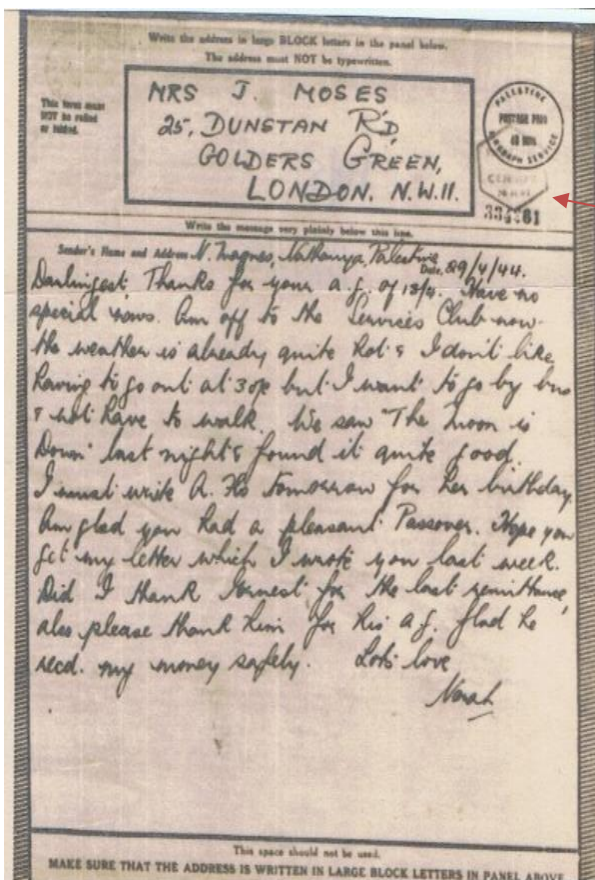 Write the address in large BLOCK letters in the panel below.
The address must NOT be typewritten.
This form must
NOT be rolled
or folded.
MRS J. MOSES
25, DUNSTAN R'D,
GOLDERS GREEN,
LONDON. N.W.11.
PALESTINE
POSTAGE PAID
AIRGRAPH SERVICE
Write the message very plainly below this line.
Sender's Name and Address N. Magnes, Nathanya, Palestine Date 29/4/44.
Darlingest, Thanks for your a.g. of 18/4. Have no
special news. Am off to the Services Club now.
The weather is already quite hot & I don't like
having to go out at 3 o/c but I want to go by bus
& not have to walk. We saw "The Moon is
Down" last night & found it quite good.
I must write A. Ho tomorrow for her birthday.
Am glad you had a pleasant Passover. Hope you
get my letter which I wrote you last week.
Did I thank Ernest for the last remittance,
also please thank him for his a.g. Glad he
recd. my money safely. Lots love
Norah
This space should not be used.
MAKE SURE THAT THE ADDRESS IS WRITTEN IN LARGE BLOCK LETTERS IN PANEL ABOVE